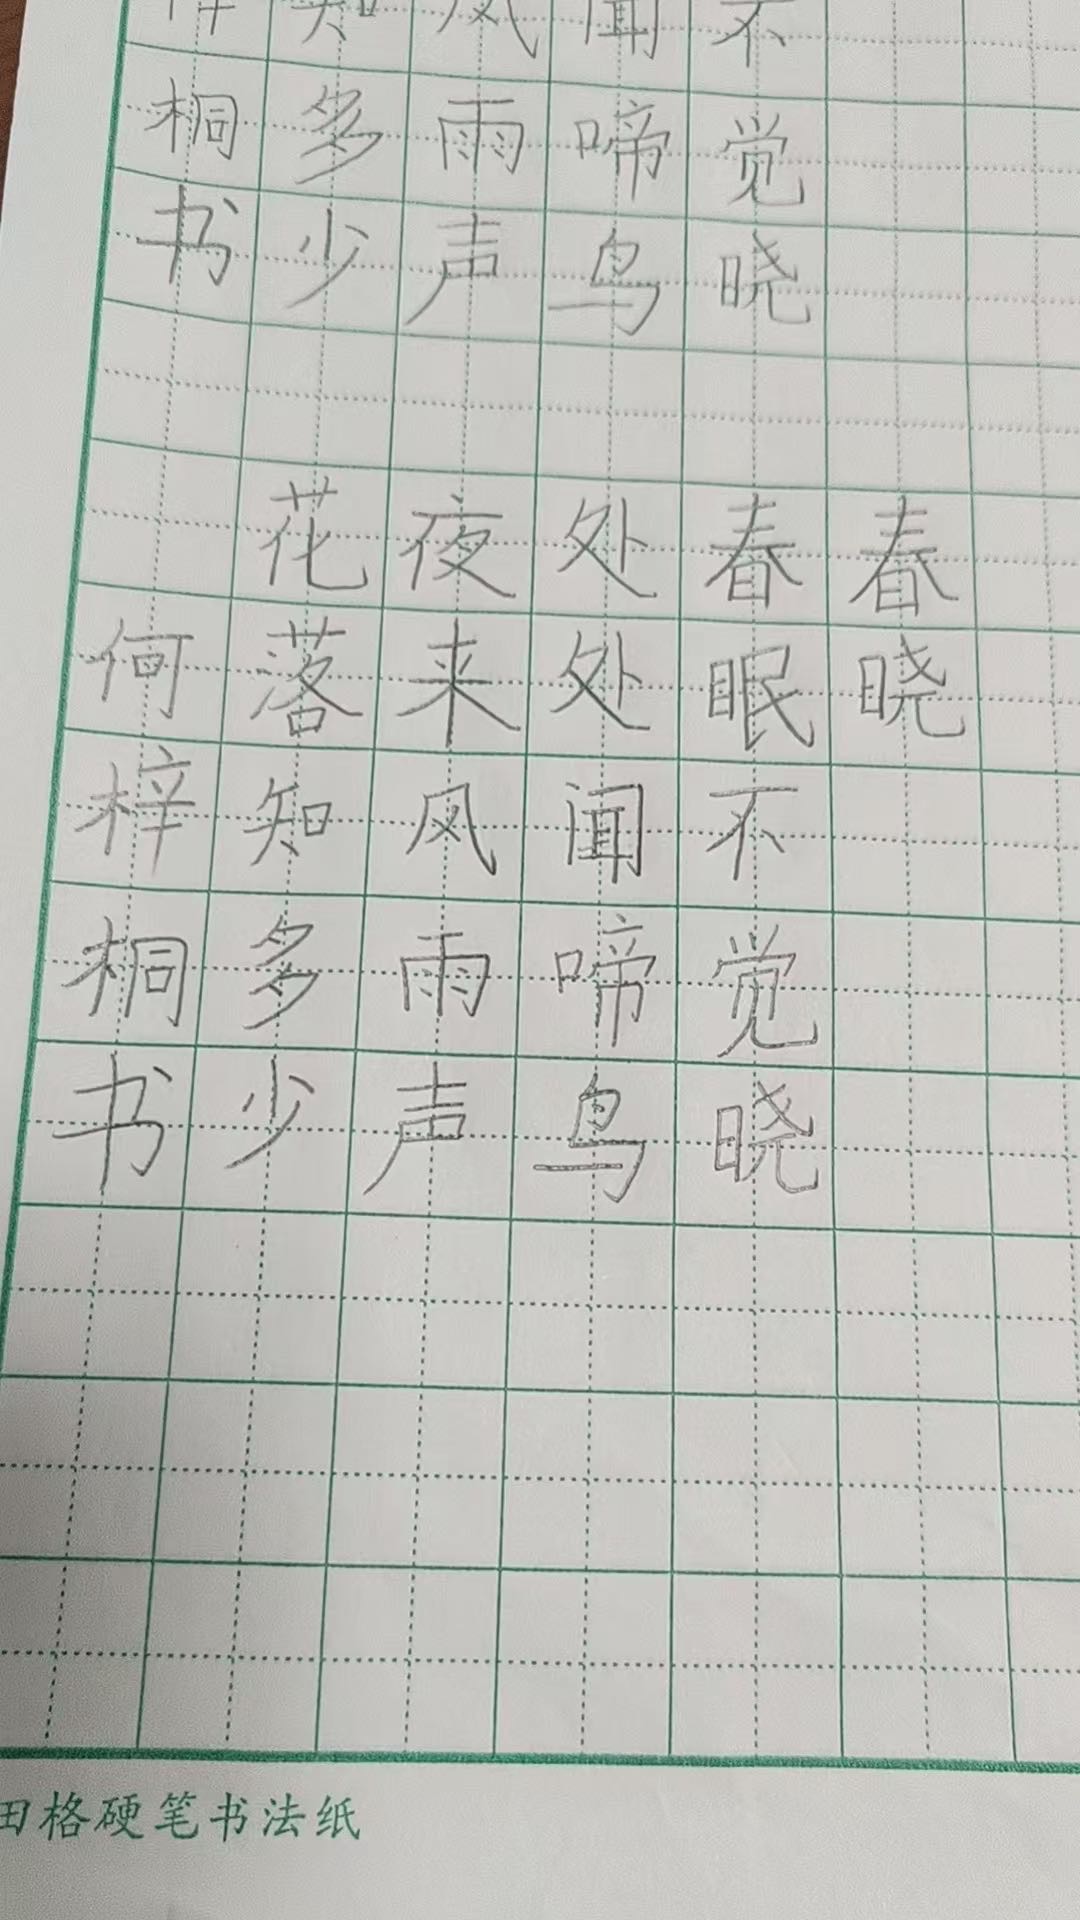 不觉晓
闻啼鸟
风雨声
知多少
梓桐书
春晓
春眠不觉晓
处处闻啼鸟
夜来风雨声
花落知多少
何梓桐书
田格硬笔书法纸